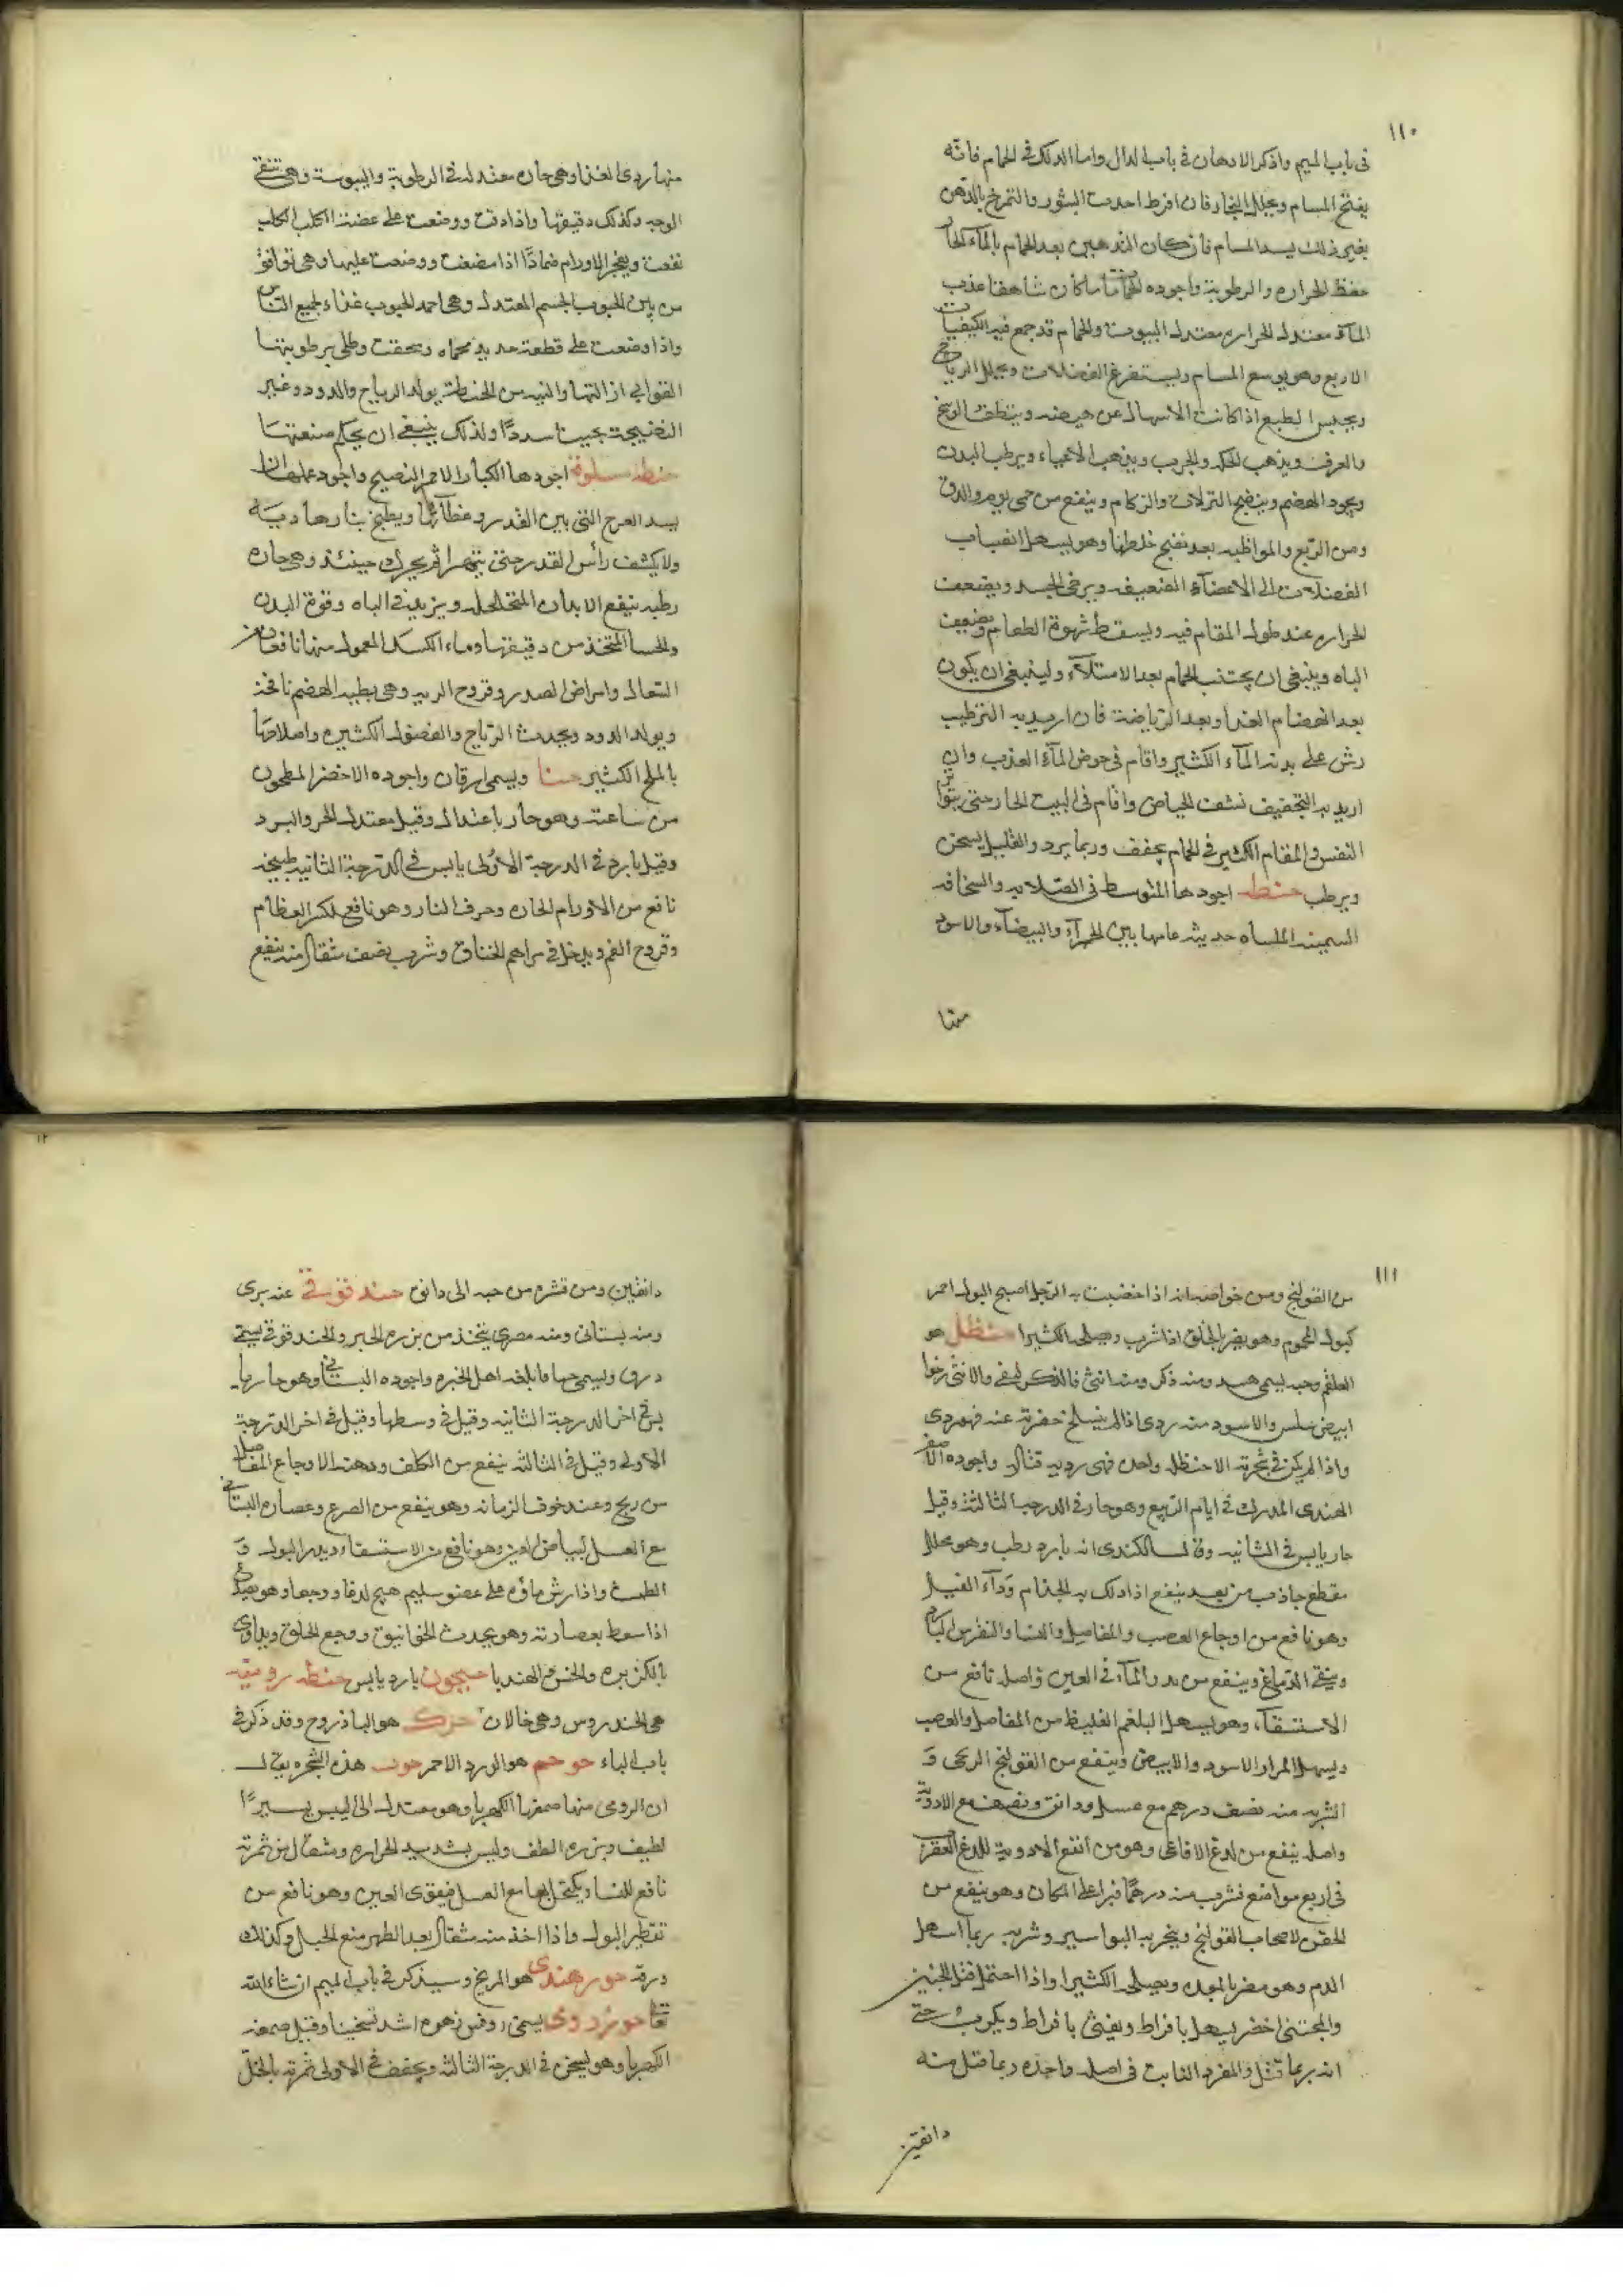 ١١٠
فى باب الميم واذكر الادهان فى باب الدال واما الدلك فى الحمام فانه
يفتح المسام ويحلل البخار فان افرط احدث البثور والتمريخ بالدهن
بغير ذلك يسد المسام فان كان التدهين بعد الحمام بالمآء الحار
حفظ الحراره والرطوبة واجوده الحمامات ما كان شاهقا عذب
المآء معتدل الحراره معتدل البيوت والحمام قد جمع فيه الكيفيات
الاربع وهو يوسع المسام ويستفرغ الفضلات ويحلل الرياح
ويحبس الطبع اذا كانت الاسهال عن هيضه وينظف الوسخ
والعرق ويذهب الحكه والجرب ويذهب الاعياء ويرطب البدن
ويجود الهضم وينضج النزلات والزكام وينفع من حمى يوم والدق
ومن الربع والمواظبه بعد نضج خلطها وهو يسهل انصباب
الفضلات الى الاعضآء الضعيفه ويرخى الجسد ويضعف
الحراره عند طول المقام فيه ويسقط شهوة الطعام ويضعف
الباه وينبغى ان يجتنب الحمام بعد الامتلآء ولينبغى ان يكون
بعد انهضام الغذا وبعد الرياضة فان اريد به الترطيب
رش على بدنه المآء الكثير واقام فى حوض المآء العذب وان
اريد به التجفيف نشف الحياض واقام فى البيت الحار حتى يتواتر
النفس والمقام الكثير فى الحمام يجفف وربما يبرد والقليل يسخن
ويرطب حنطه اجودها المتوسط فى الصلابه والسخافه
السمينه الملساه حديثه عامها بين الحمرآء والبيضآء والاسود
منها
منها ردى الغذا وهى حاره معتدلة فى الرطوبة واليبوسة وهى تنقى
الوجه وكذلك دقيقها واذا دقت ووضعت على عضة الكلب الكلب
نفعت ويفجر الاورام ضمادًا اذا مضغت ووضعت عليها وهى توافق
من بين الحبوب الجسم المعتدل وهى احمد الحبوب غذاء لجميع الناس
واذا وضعت على قطعة حديد محماه وسحقت وطلى برطوبتها
القوابى ازالتها والنيه من الحنطة يولد الرياح والدود وغير
النضيجة سددًا ولذلك ينبغى ان يحكم صنعتها
حنطه مسلوقة اجودها الكبار الاحمر النضيج واجود عملها ان
يسد الفرج التى بين القدر وغطآئها ويطبخ بنار هاديه
ولا يكشف رأس القدر حتى يتهرا ثم يحرك حينئذ وهى حاره
رطبه ينفع الابدان المتخلخله ويزيد فى الباه وقوة البدن
والحسا المتخذ من دقيقها وماء الكسك المعمول منها نافعان من
السعال وامراض الصدر وقروح الريه وهى بطيه الهضم نافخه
ويولد الدود ويحدث الرياح والفضول الكثيره واصلاحها
بالملح الكثير حنا ويسمى ارقان واجوده الاخضر المطحون
من ساعته وهو حار باعتدال وقيل معتدل الحر والبرد
وقيل بارد فى الدرجة الاولى يابس فى الدرجة الثانيه طبيخه
نافع من الاورام الحاره وحرق النار وهو نافع لكسر العظام
وقروح الفم ويدخل فى مراهم الخناق وشرب نصف مثقال منه ينفع
١١١
من القولنج ومن خواصه انه اذا خضبت به الرجل اصبح البول احمر
كبول المحموم وهو يضر بالحلق اذا شرب ويصلحه الكثيرا حنظل هو
العلقم وحبه يسمى هبيد ومنه ذكر ومنه انثى فالذكر ليفى والانثى رخوا
ابيض سلس والاسود منه ردى اذا لم ينسلخ خضرته عنه فهو ردى
واذا لم يكن فى شجرته الا حنظله واحده فهى رديه قتاله واجوده الاصفر
الهندى المدرك فى ايام الربيع وهو حار فى الدرجة الثالثة وقيل
حار يابس فى الثانيه وقال الكندى انه بارد رطب وهو محلل
مقطع جاذب من بعيد ينفع اذا دلك به الجذام ودآء الفيل
وهو نافع من اوجاع العصب والمفاصل والنسا والنقرس البارد
وينقى الدماغ وينفع من بدو المآء فى العين واصله نافع من
الاستسقآء وهو يسهل البلغم الغليظ من المفاصل والعصب
ويسهل المرار الاسود والابيض وينفع من القولنج الريحى و
الشربه منه نصف درهم مع عسل ودانق ونصف مع الادوية
واصله ينفع من لدغ الافاعى وهو من انفع الادوية للدغ العقرب
فى اربع مواضع فشرب منه درهمًا فبرا على المكان وهو ينفع من
الحقن لاصحاب القولنج ويبخر به البواسير وشربه ربما اسهل
الدم وهو مضر بالمعده ويصلحه الكثيرا واذا احتمل قتل الجنين
والمجتنى اخضر يسهل بافراط ويقيئ بافراط ويكرب حتى
انه ربما قتل والمفرد النابت فى اصله واحده ربما قتل منه
دانقين
دانقين ومن قشره من حبه الى دانق حندقوقى منه برى
ومنه بستانى ومنه مصرى يتخذ من بزره الخبز والحندقوقى يسمى
ذرق ويسمى حباقا بلغه اهل الحيره واجوده البستانى وهو حار يا
بس فى اخر الدرجة الثانيه وقيل فى وسطها وقيل فى اخر الدرجة
الاولى وقيل فى الثالثه ينفع من الكلف ودهنه الاوجاع المفاصل
من ريح وعند خوف الزمانه وهو ينفع من الصرع وعصاره البستانى
مع العسل لبياض العين وهو نافع من الاستسقاء ويدر البول و
الطمث واذا رش ماؤه على عضو سليم هيج لدغا ووجعا وهو يصدع
اذا سعط بعصارته وهو يحدث الخوانيق ووجع الحلق ويداوى
بالكزبره والخس والهندبا بارد يابس حنطه روميه
هى الخندروس وهى خالان حوك هو الباذروج وقد ذكر فى
باب الباء حوجم هو الورد الاحمر حور هذه الشجره يقال
ان الرومى منها صمغها الكهربا وهو معتدل الى اليبس يسيرًا
لطيف وبزره الطف وليس بشديد الحراره ومثقال من ثمرته
نافع للنسا ويكتحل بها مع العسل فيقوى العين وهو نافع من
تقطير البول واذا اخذ منه مثقال بعد الطهر منع الحبل وكذلك
ورقه حور هندى هو المريخ وسيذكر فى باب الميم ان شاء الله
تعا حور رومى يسمى زهره اشد تسخينا وقيل صمغه
الكهربا وهو يسخن فى الدرجة الثالثه ويجفف فى الاولى ثمرته بالخل